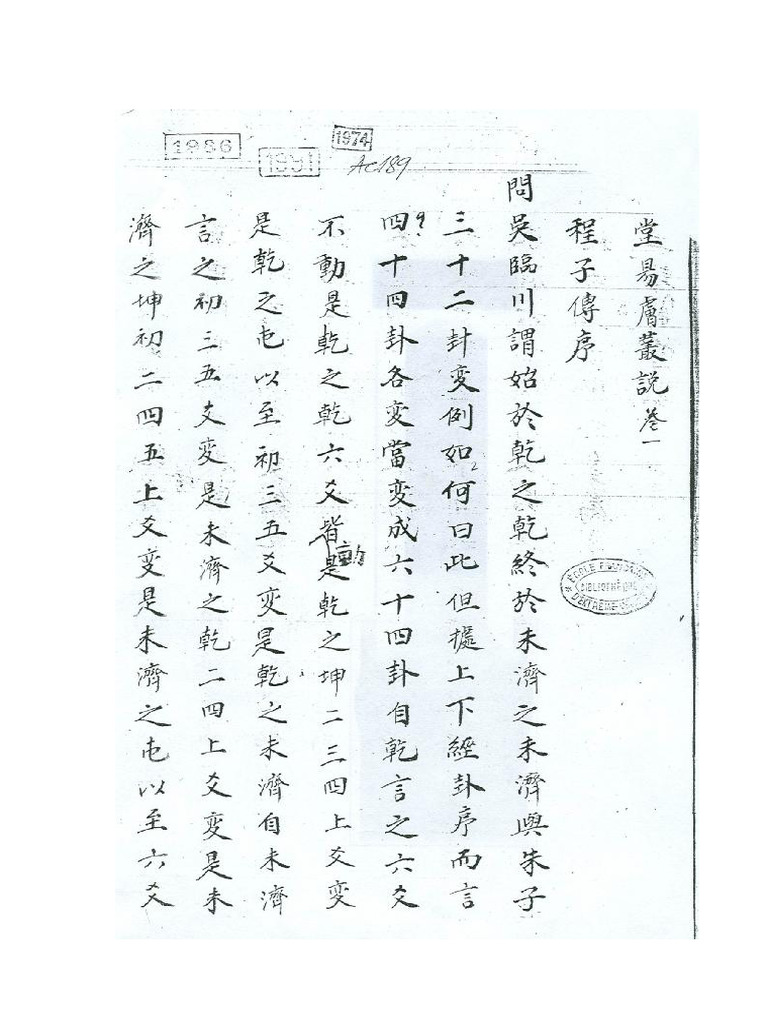 1986
1991
1974
AC189
堂易膚叢説 卷一
程子傳序
問吳臨川謂始於乾之乾終於未濟之未濟與朱子
三十二卦变例如何曰此但㨿上下經卦序而言
四十四卦各变當变成六十四卦自乾言之六爻
不動是乾之乾六爻皆動是乾之坤二三四上爻变
是乾之屯以至初三五爻变是乾之未濟自未濟
言之初三五爻变是未濟之乾二四上爻变是未
濟之坤初二四五上爻变是未濟之屯以至六爻
ECOLE FRANCAISE
BIBLIOTHEQUE
D'EXTREME